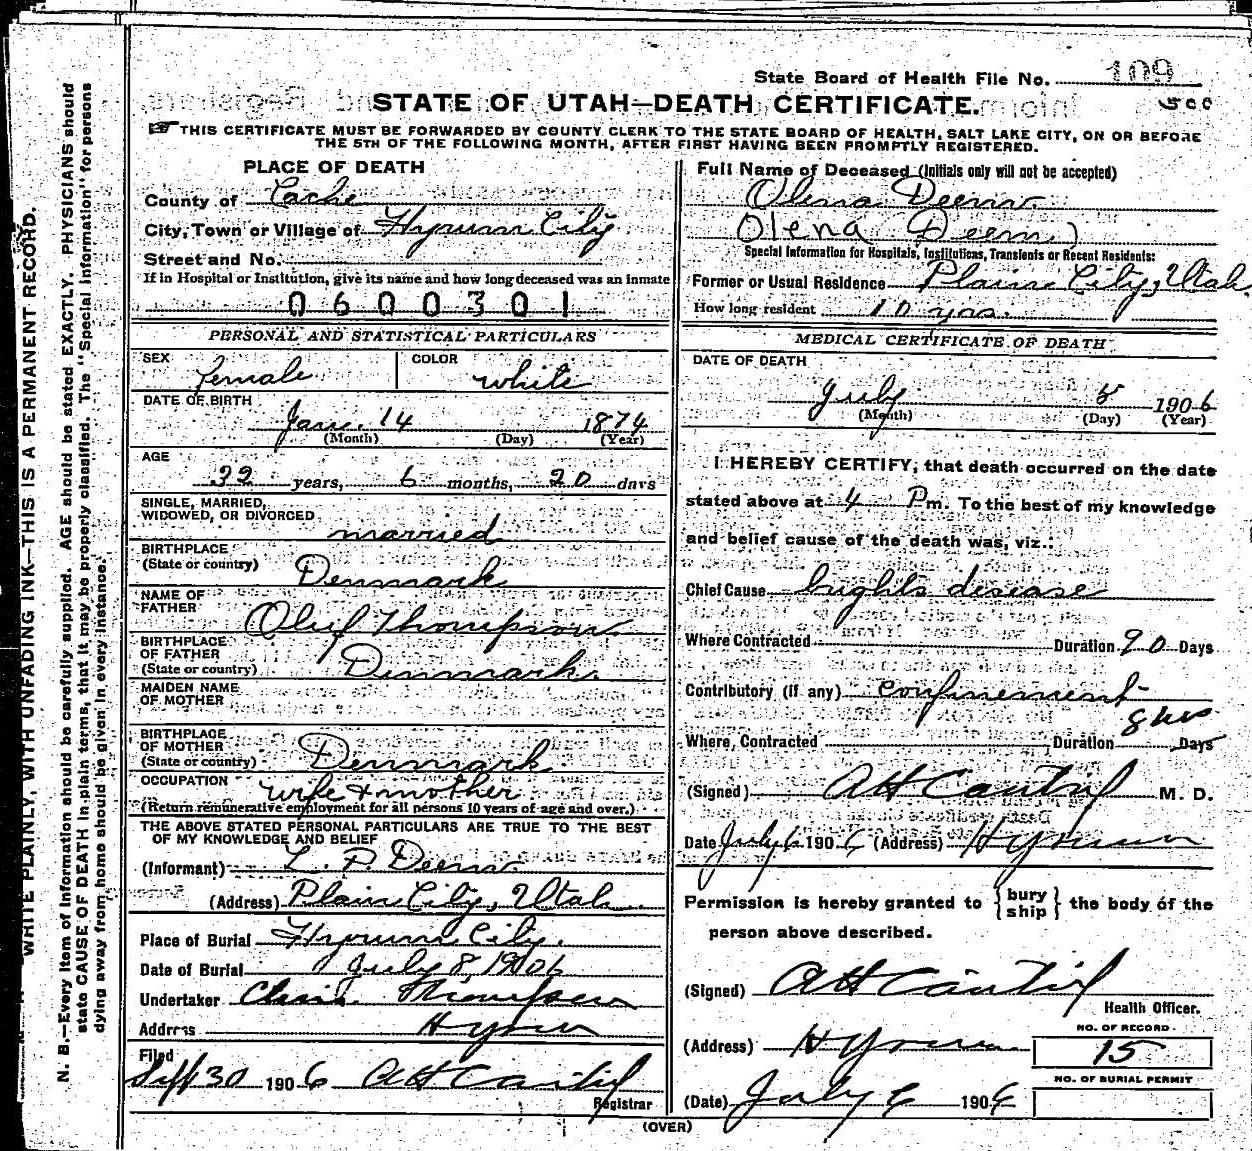 State Board of Health File No. 109
STATE OF UTAH—DEATH CERTIFICATE.
THIS CERTIFICATE MUST BE FORWARDED BY COUNTY CLERK TO THE STATE BOARD OF HEALTH, SALT LAKE CITY, ON OR BEFORE
THE 5TH OF THE FOLLOWING MONTH, AFTER FIRST HAVING BEEN PROMPTLY REGISTERED.
PLACE OF DEATH
County of Cache
City, Town or Village of Hyrum City
Street and No.
If in Hospital or Institution, give its name and how long deceased was an inmate
0600301
PERSONAL AND STATISTICAL PARTICULARS
SEX female COLOR white
DATE OF BIRTH
Jan. 14 1874
(Month) (Day) (Year)
AGE
32 years, 6 months, 20 days
SINGLE, MARRIED,
WIDOWED, OR DIVORCED married
BIRTHPLACE
(State or country) Denmark
NAME OF
FATHER Oluf Thompson
BIRTHPLACE
OF FATHER
(State or country) Denmark
MAIDEN NAME
OF MOTHER
BIRTHPLACE
OF MOTHER
(State or country) Denmark
OCCUPATION wife & mother
(Return remunerative employment for all persons 10 years of age and over.)
THE ABOVE STATED PERSONAL PARTICULARS ARE TRUE TO THE BEST
OF MY KNOWLEDGE AND BELIEF
(Informant) L. P. Deem
(Address) Plain City, Utah
Place of Burial Hyrum City.
Date of Burial July 8, 1906
Undertaker Chris. Thompson
Address Hyrum
Filed
Sept 30 1906
Registrar
Full Name of Deceased (Initials only will not be accepted)
Olena Deem
Olena Deem)
Special Information for Hospitals, Institutions, Transients or Recent Residents:
Former or Usual Residence Plain City, Utah.
How long resident 10 yrs.
MEDICAL CERTIFICATE OF DEATH
DATE OF DEATH
July 5 1906
(Month) (Day) (Year)
I HEREBY CERTIFY, that death occurred on the date
stated above at 4 Pm. To the best of my knowledge
and belief cause of the death was, viz.:
Chief Cause brights disease
Where Contracted Duration 90 Days
Contributory (if any) confinement
Where Contracted Duration 8 hrs Days
(Signed) M. D.
Date July 6 1906 (Address) Hyrum
Permission is hereby granted to {bury
ship} the body of the
person above described.
(Signed)
Health Officer.
(Address) Hyrum
NO. OF RECORD
15
NO. OF BURIAL PERMIT
(Date) July 6 1906
(OVER)
WRITE PLAINLY, WITH UNFADING INK—THIS IS A PERMANENT RECORD.
N. B.—Every item of Information should be carefully supplied. AGE should be stated EXACTLY. PHYSICIANS should
state CAUSE OF DEATH in plain terms, that it may be properly classified. The "Special Information" for persons
dying away from home should be given in every instance.